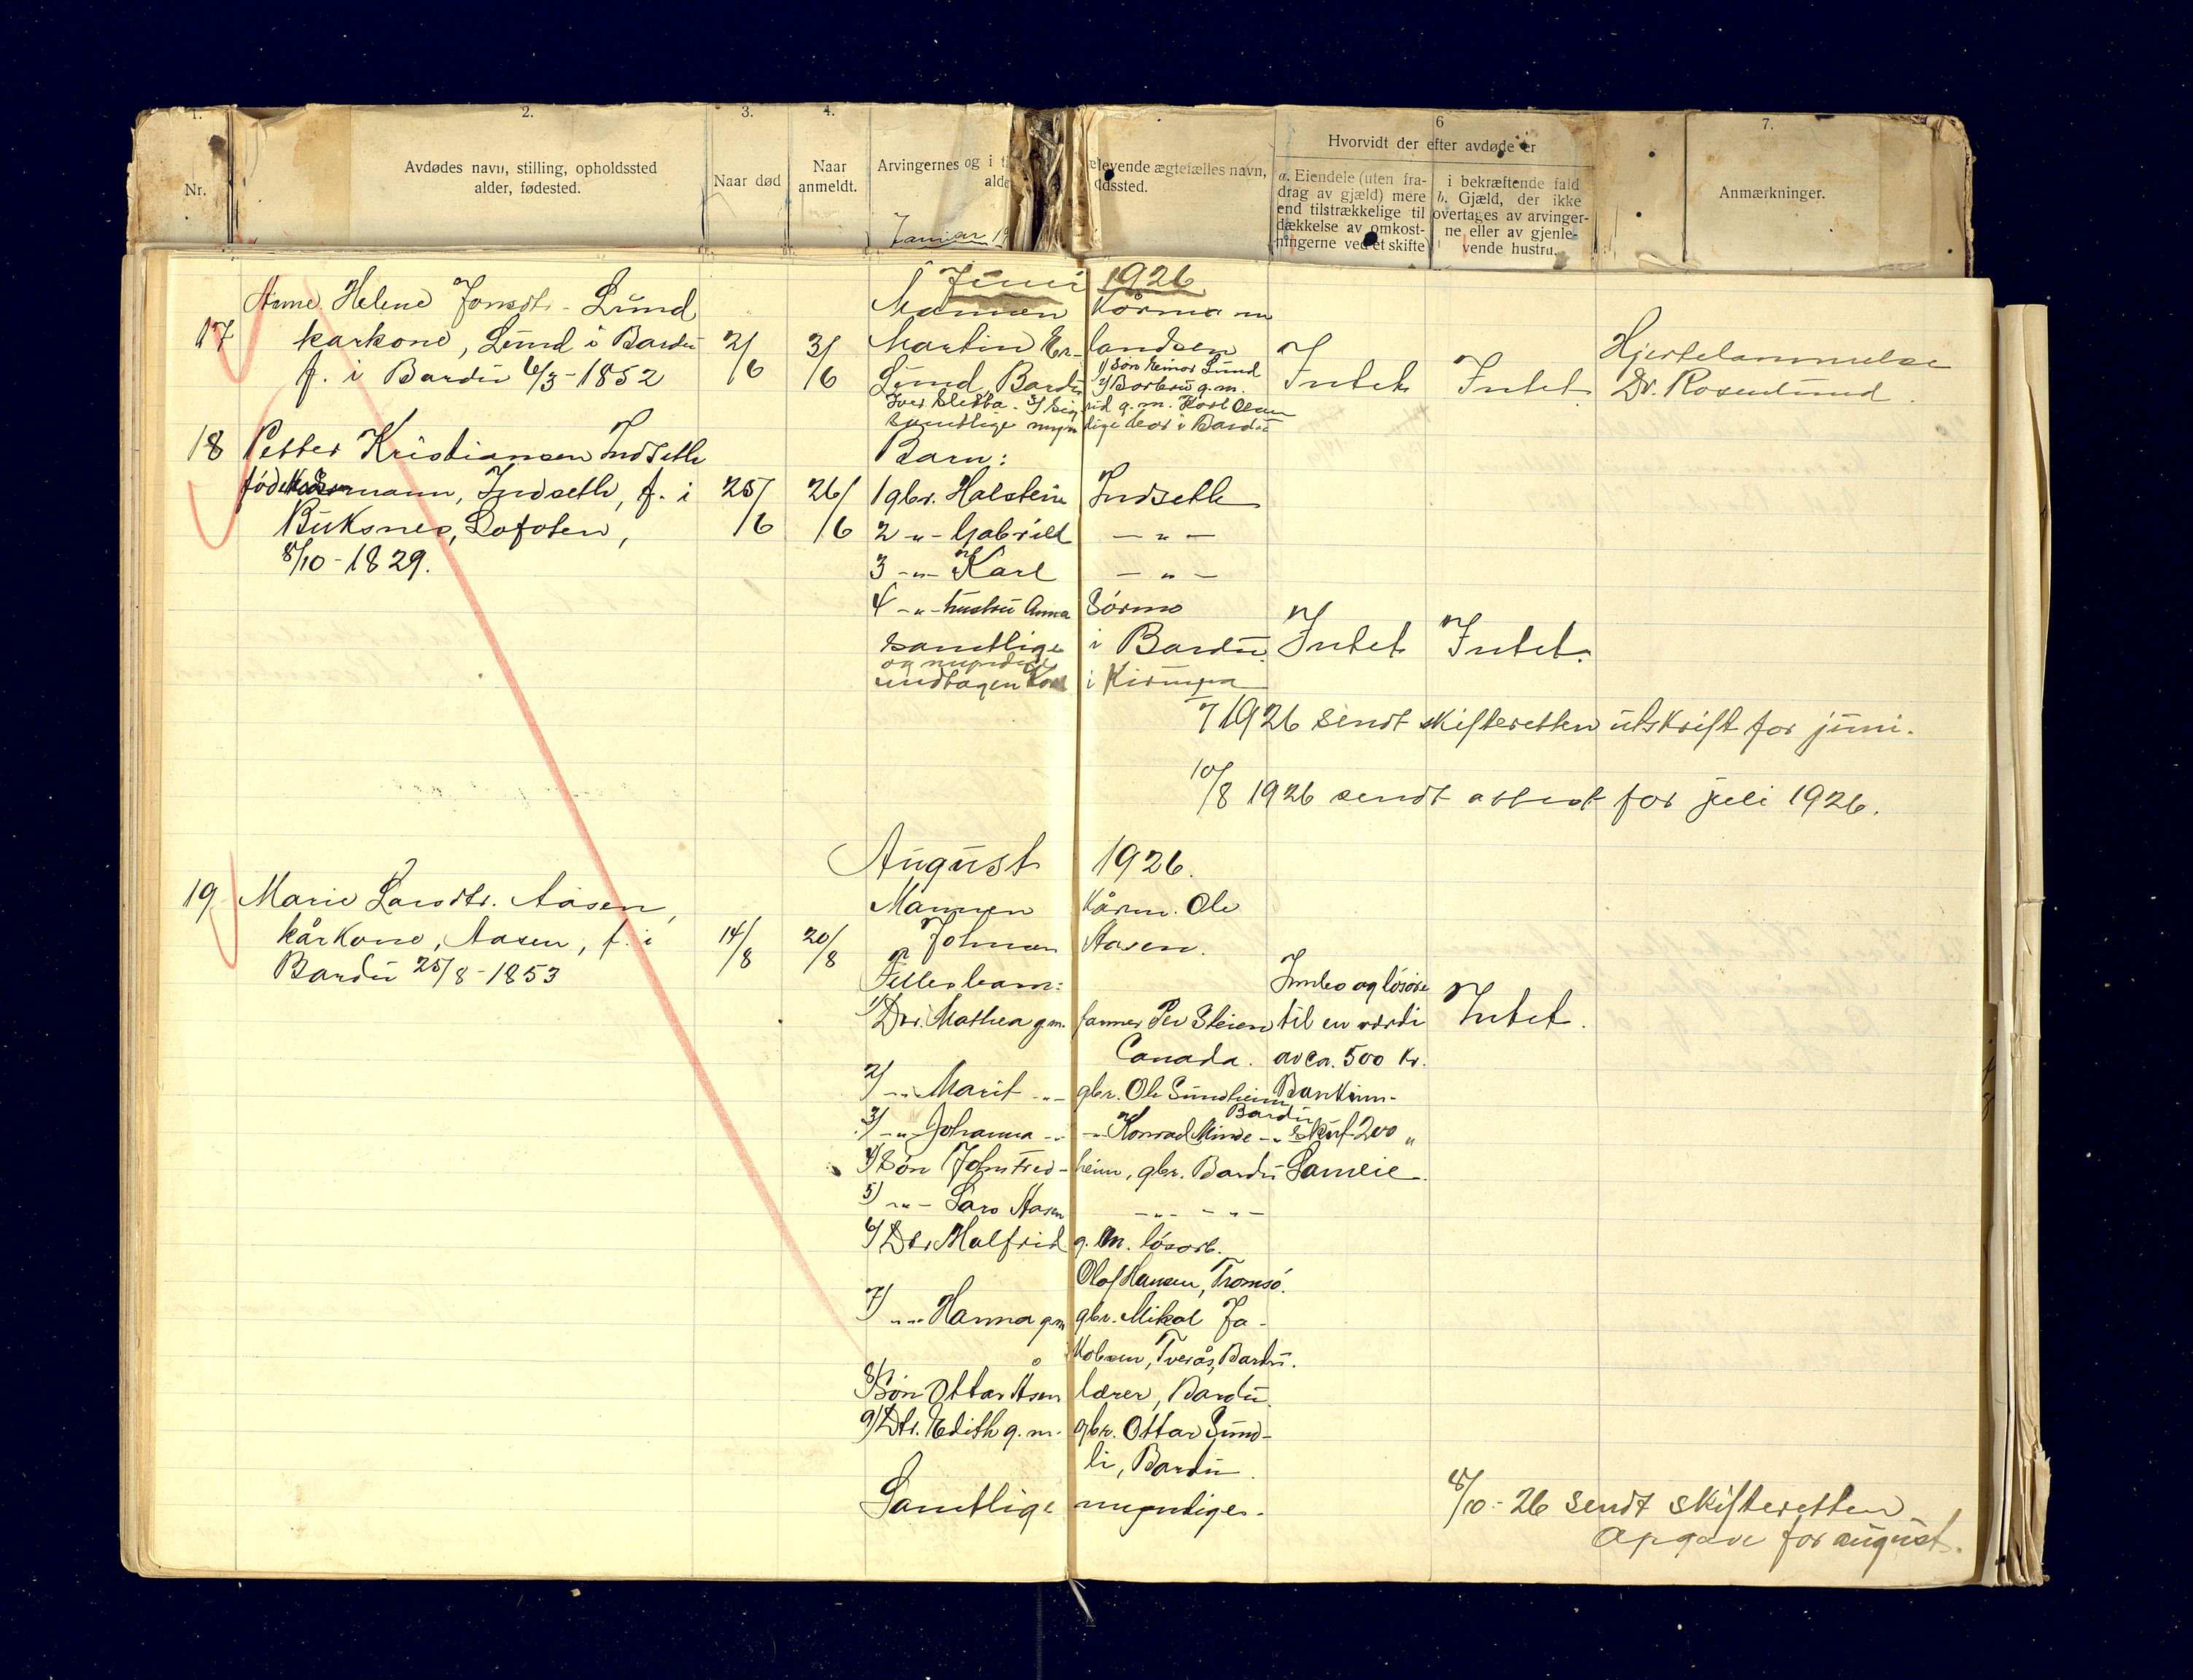 1.
2.
3.
4.
6
7.
Nr.
Avdødes navn, stilling, opholdssted
alder, fødested.
Naar død
Naar
anmeldt.
Arvingernes og i
alde
elevende ægtefælles navn,
dssted.
Januar 19
Hvorvidt der efter avdøde er
a. Eiendele (uten fra-
drag av gjæld) mere
end tilstrækkelige til
dækkelse av omkost-
ningerne ved et skifte
i bekræftende fald
b. Gjæld, der ikke
overtages av arvinger-
ne eller av gjenle-
vende hustru.
Anmærkninger.
Juni 1926
17 Anne Helene Jonsdtr. Lund
karkone, Lund i Bardu
f. i Bardu 6/3-1852
2/6 3/6
Mannen kårman
Martin Er- landsen
Lund, Bardu 1) Søn Einar Lund
2) Borbru g.m.
Iver Sletta. 3) Sigrid g.m. Karl Olsen
samtlige myndige bor i Bardu
Intet Intet.
Hjertelammelse
Dr. Rosenlund.
18 Petter Kristiansen Indseth
føderåsmann, Indseth, f. i
Buksnes, Lofoten,
8/10-1829.
25/6 26/6
Barn:
1 gbr. Halstein Indseth
2 -"- Gabriel -"-
3 -"- Karl -"-
4 -"- hustru Anna Sørmo
samtlige i Bardu. Intet Intet.
og myndige
undtagen Karl i Kiruna
/7 1926 sendt skifteretten utskrift for juni.
10/8 1926 sendt attest for juli 1926.
August 1926.
19 Marie Larsdtr. Aasen,
kårkone, Aasen, f. i
Bardu 25/8-1853
14/8 20/8
Mannen kårm. Ole
Johnsen Aasen.
Fellesbarn:
1) Dtr. Mathea g.m. farmer Per Steien
Canada.
2) -"- Marit -"- gbr. Ole Sundheim
Bardu
3) -"- Johanna -"- -"- Konrad Minde -"-
4) Søn John Fred- heim, gbr. Bardu
5) -"- Lars Aasen -"- -"-
6) Dtr. Malfrid g.m. løsarb.
Olaf Hansen, Tromsø.
7) -"- Hanna gm gbr. Mikal Ja-
kobsen, Tverås, Bardu.
8) Søn Ottar Åsen lærer, Bardu.
9) Dtr. Edith g.m. gbr. Ottar Sund-
li, Bardu.
Samtlige myndige.
Innbo og løsøre
til en værdi
av ca. 500 kr.
Bankinn-
skud 200 "
Sameie.
Intet.
5/10-26 sendt skifteretten
opgave for august.